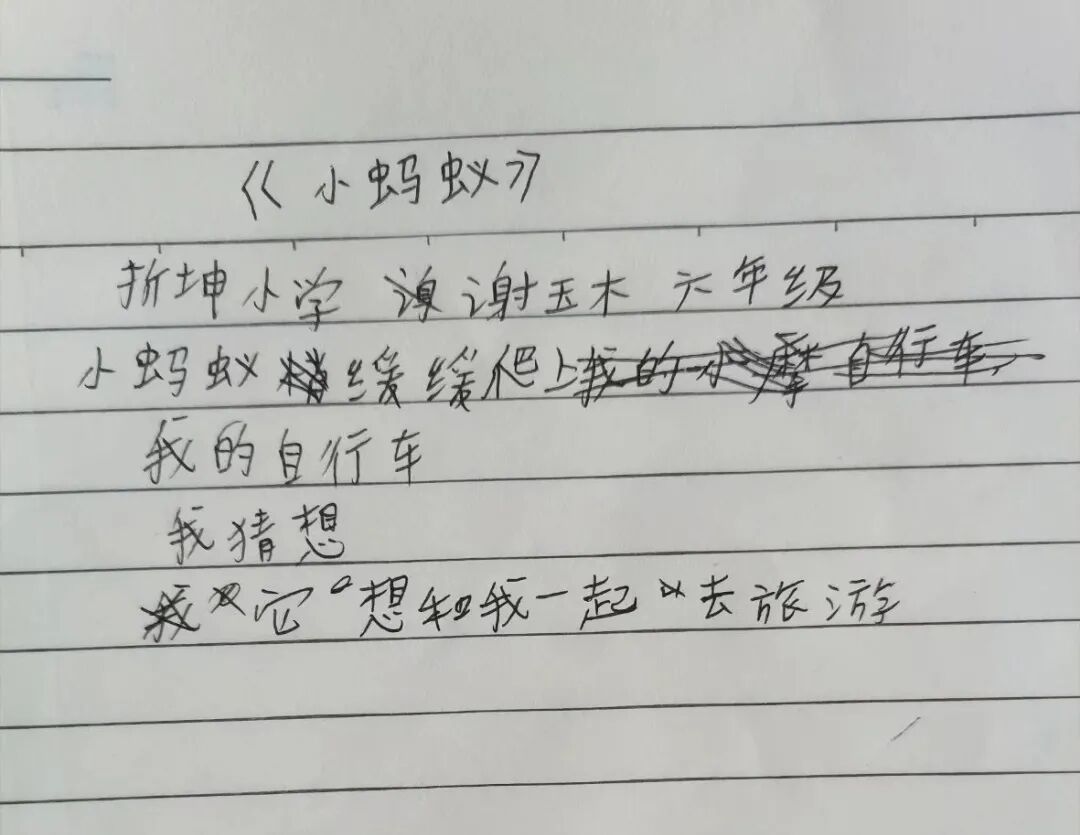 《小蚂蚁》
折坤小学 谢玉木 六年级
小蚂蚁缓缓爬上
我的自行车
我猜想
它想和我一起去旅游